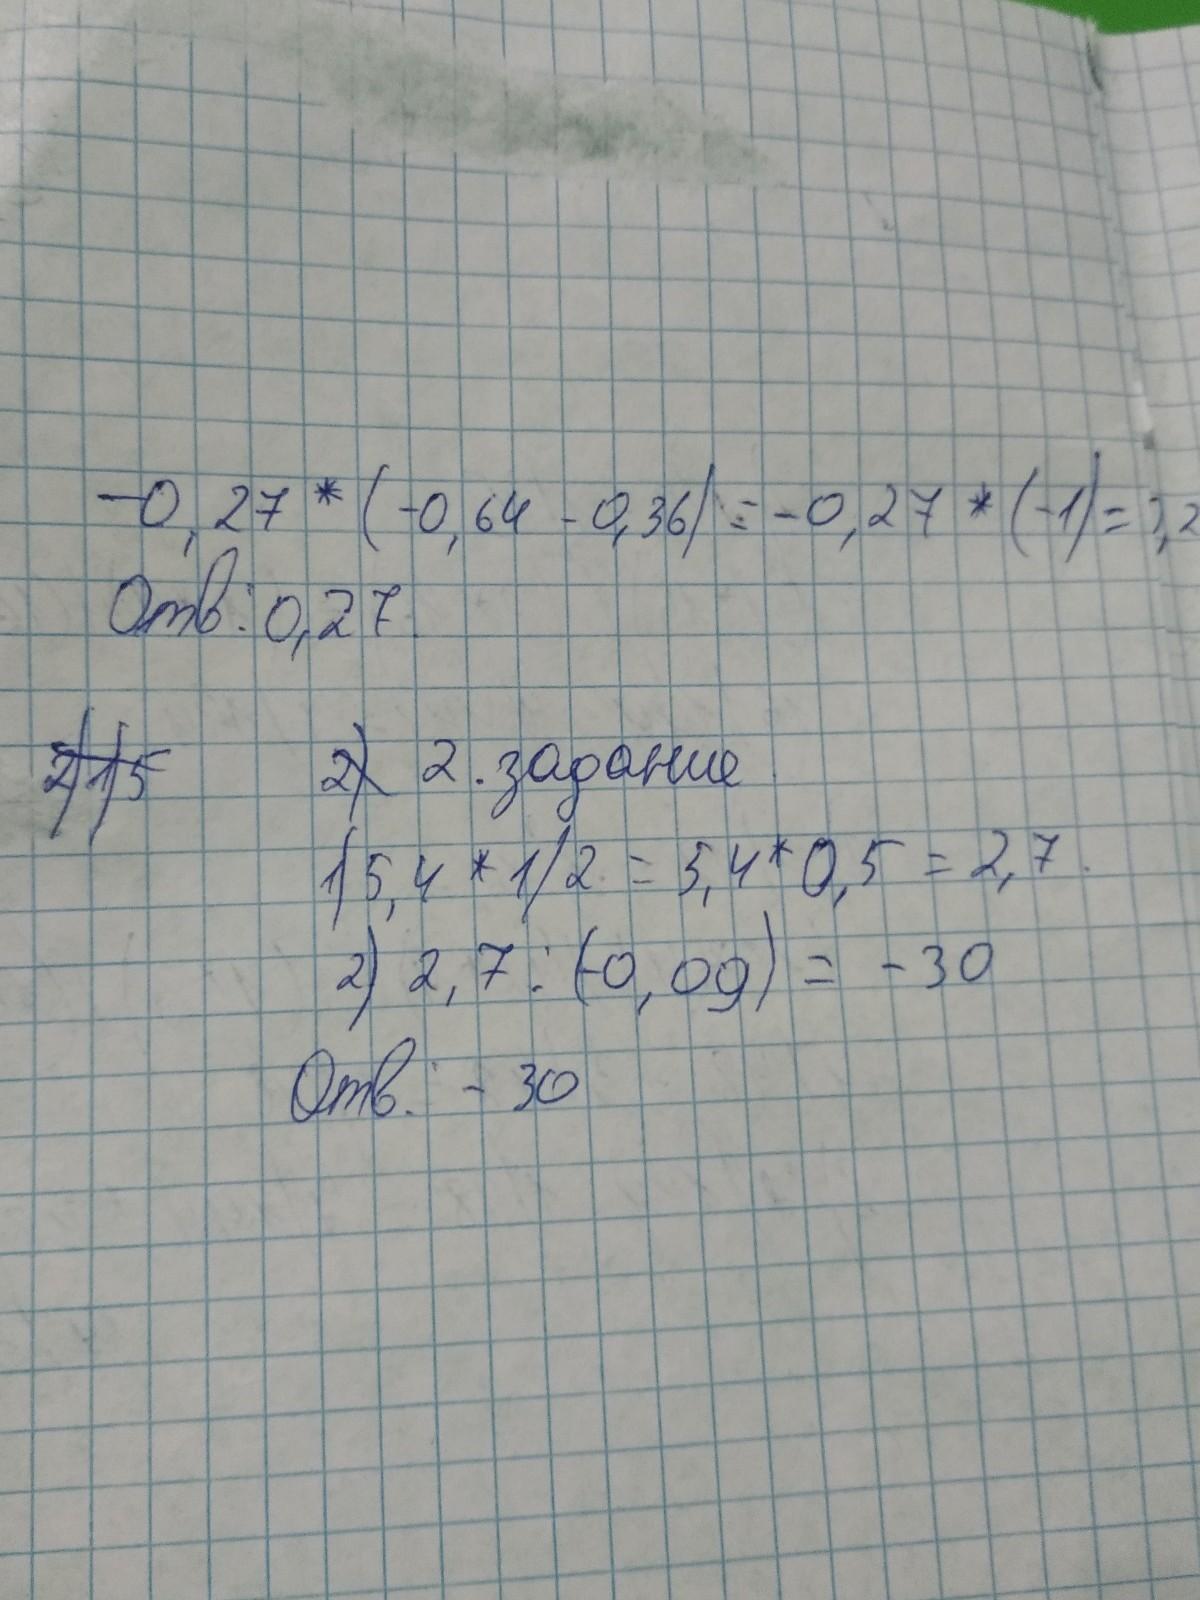 -0,27*(-0,64-0,36)=-0,27*(-1)=0,2
Отв: 0,27.
2)1)5
2) 2. задание
1) 5,4*1/2=5,4*0,5=2,7.
2) 2,7:(-0,09)=-30
Отв.: -30